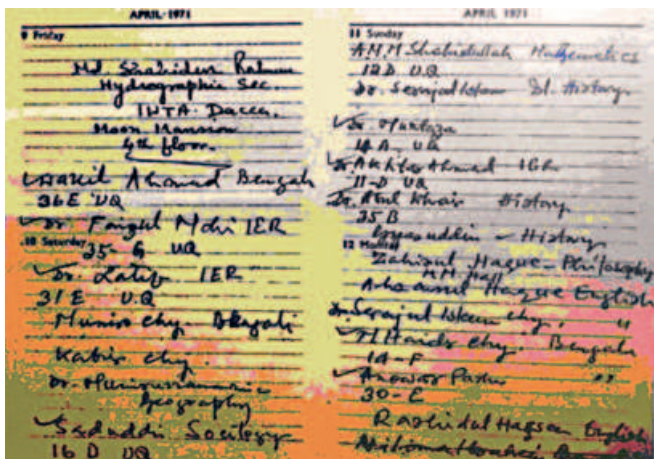 APRIL 1971
9 Friday
Md. Shahidur Rahman
Hydrographic Sec.
INTA. Dacca.
Moon Mansion
4th floor.
Wakil Ahmad Bengali
36 E UQ
Dr. Faizul Mohi IER
10 Saturday
35 G UQ
Dr. Latif IER
31 E U.Q
Munir chy. Bengali
Kabir chy.
Dr. Muniruzzaman
Geography
Sadaddin Sociology
16 D UQ
APRIL 1971
11 Sunday
A.M.M Shahidullah Mathematics
12 D UQ
Dr. Serajul Islam Isl. History
Dr. Murtaza
14 A UQ
Dr. Akhtar Ahmad IER
11-D UQ
Dr. Abul Khair History
35 B
Gyasuddin - History
12 Monday
Zahirul Haque - Philosophy
M.M. Hall
Ahsanul Haque English
Dr. Serajul Islam Chy. "
M Haidr Chy. Bengali
14-F
Anowar Pasha "
30-E
Rashidul Hassan English